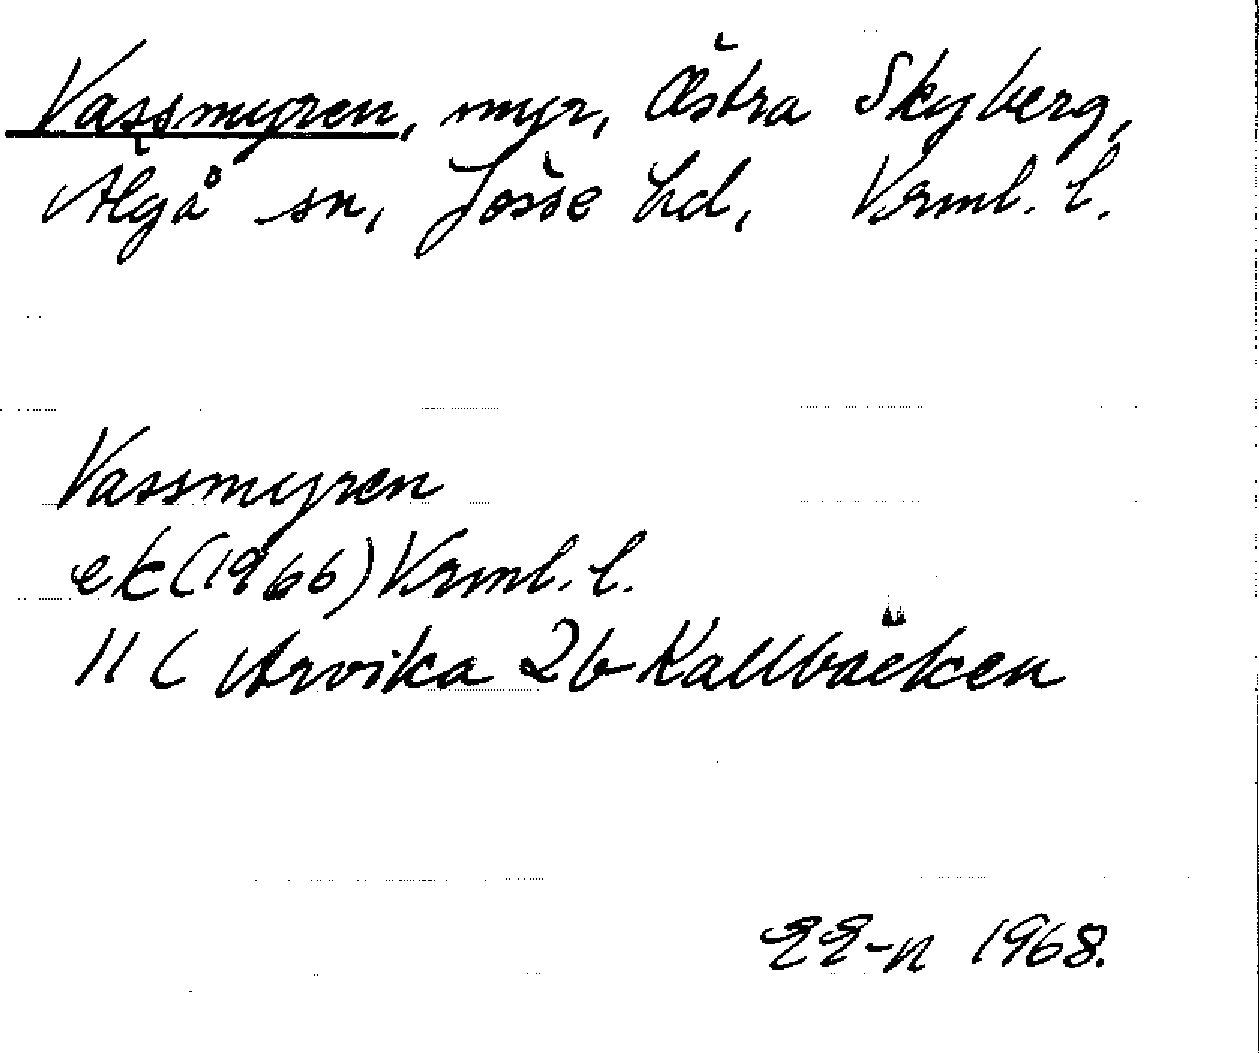 Vassmyren, myr, Östra Skyberg,
Älgå sn, Jösse hd, Vrml. l.
Vassmyren
ek (1966) Vrml. l.
11 C Arvika 2b Kallbäcken
EE-n 1968.